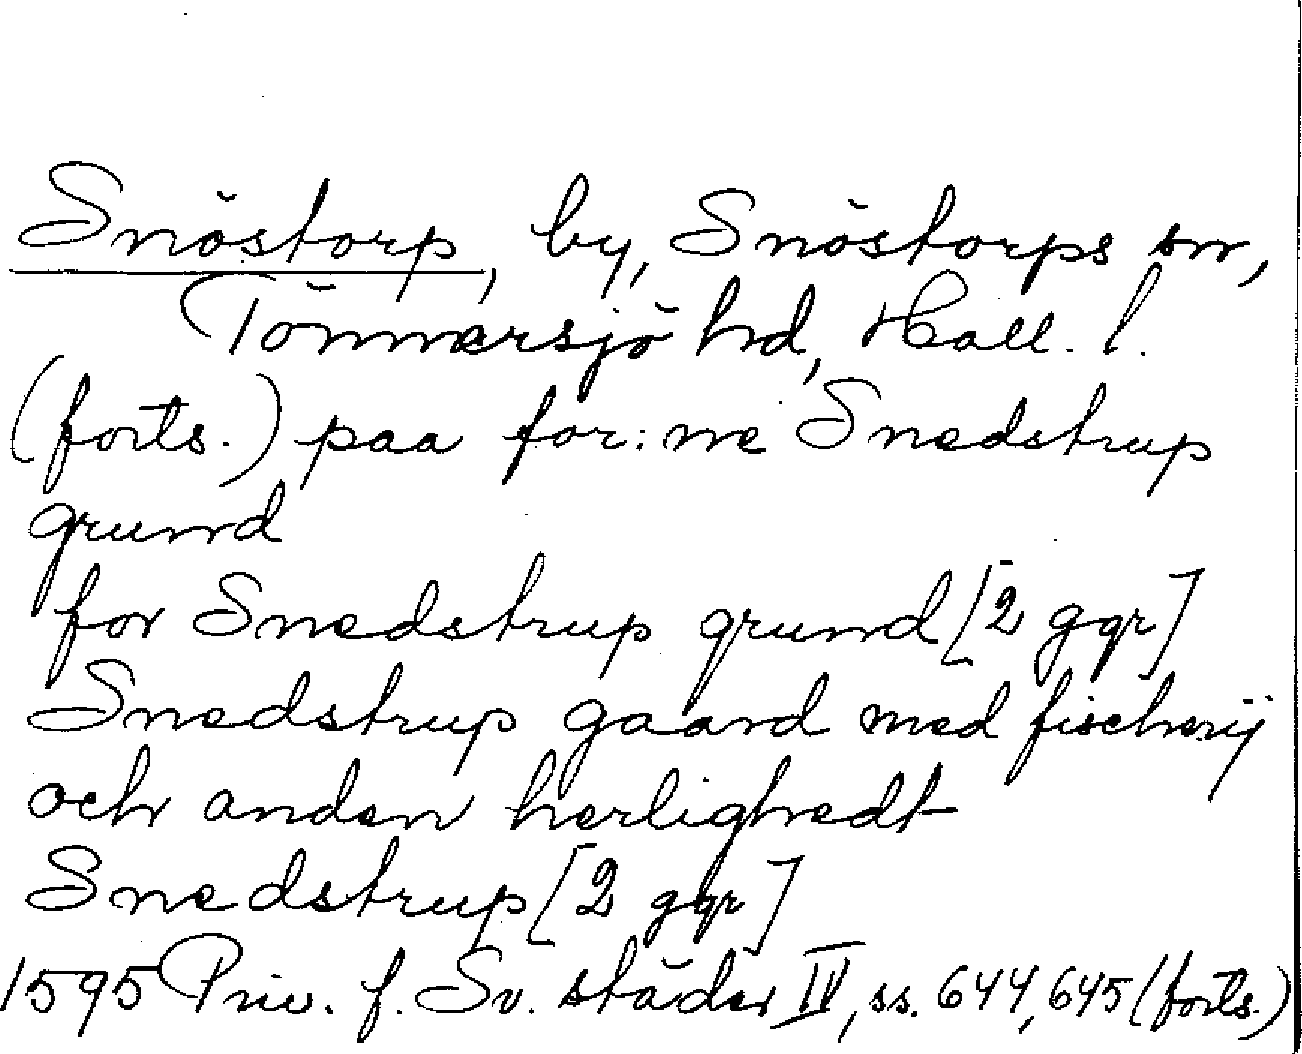 Snöstorp, by, Snöstorps sn,
Tönnersjö hd, Hall. l.
(forts.) paa for:ne Snedstrup
grund
for Snedstrup grund [2 ggr]
Snedstrup gaard med fischerij
och anden herlighedt
Snedstrup [2 ggr]
1595 Priv. f. Sv. städer IV, ss. 644, 645 (forts.)